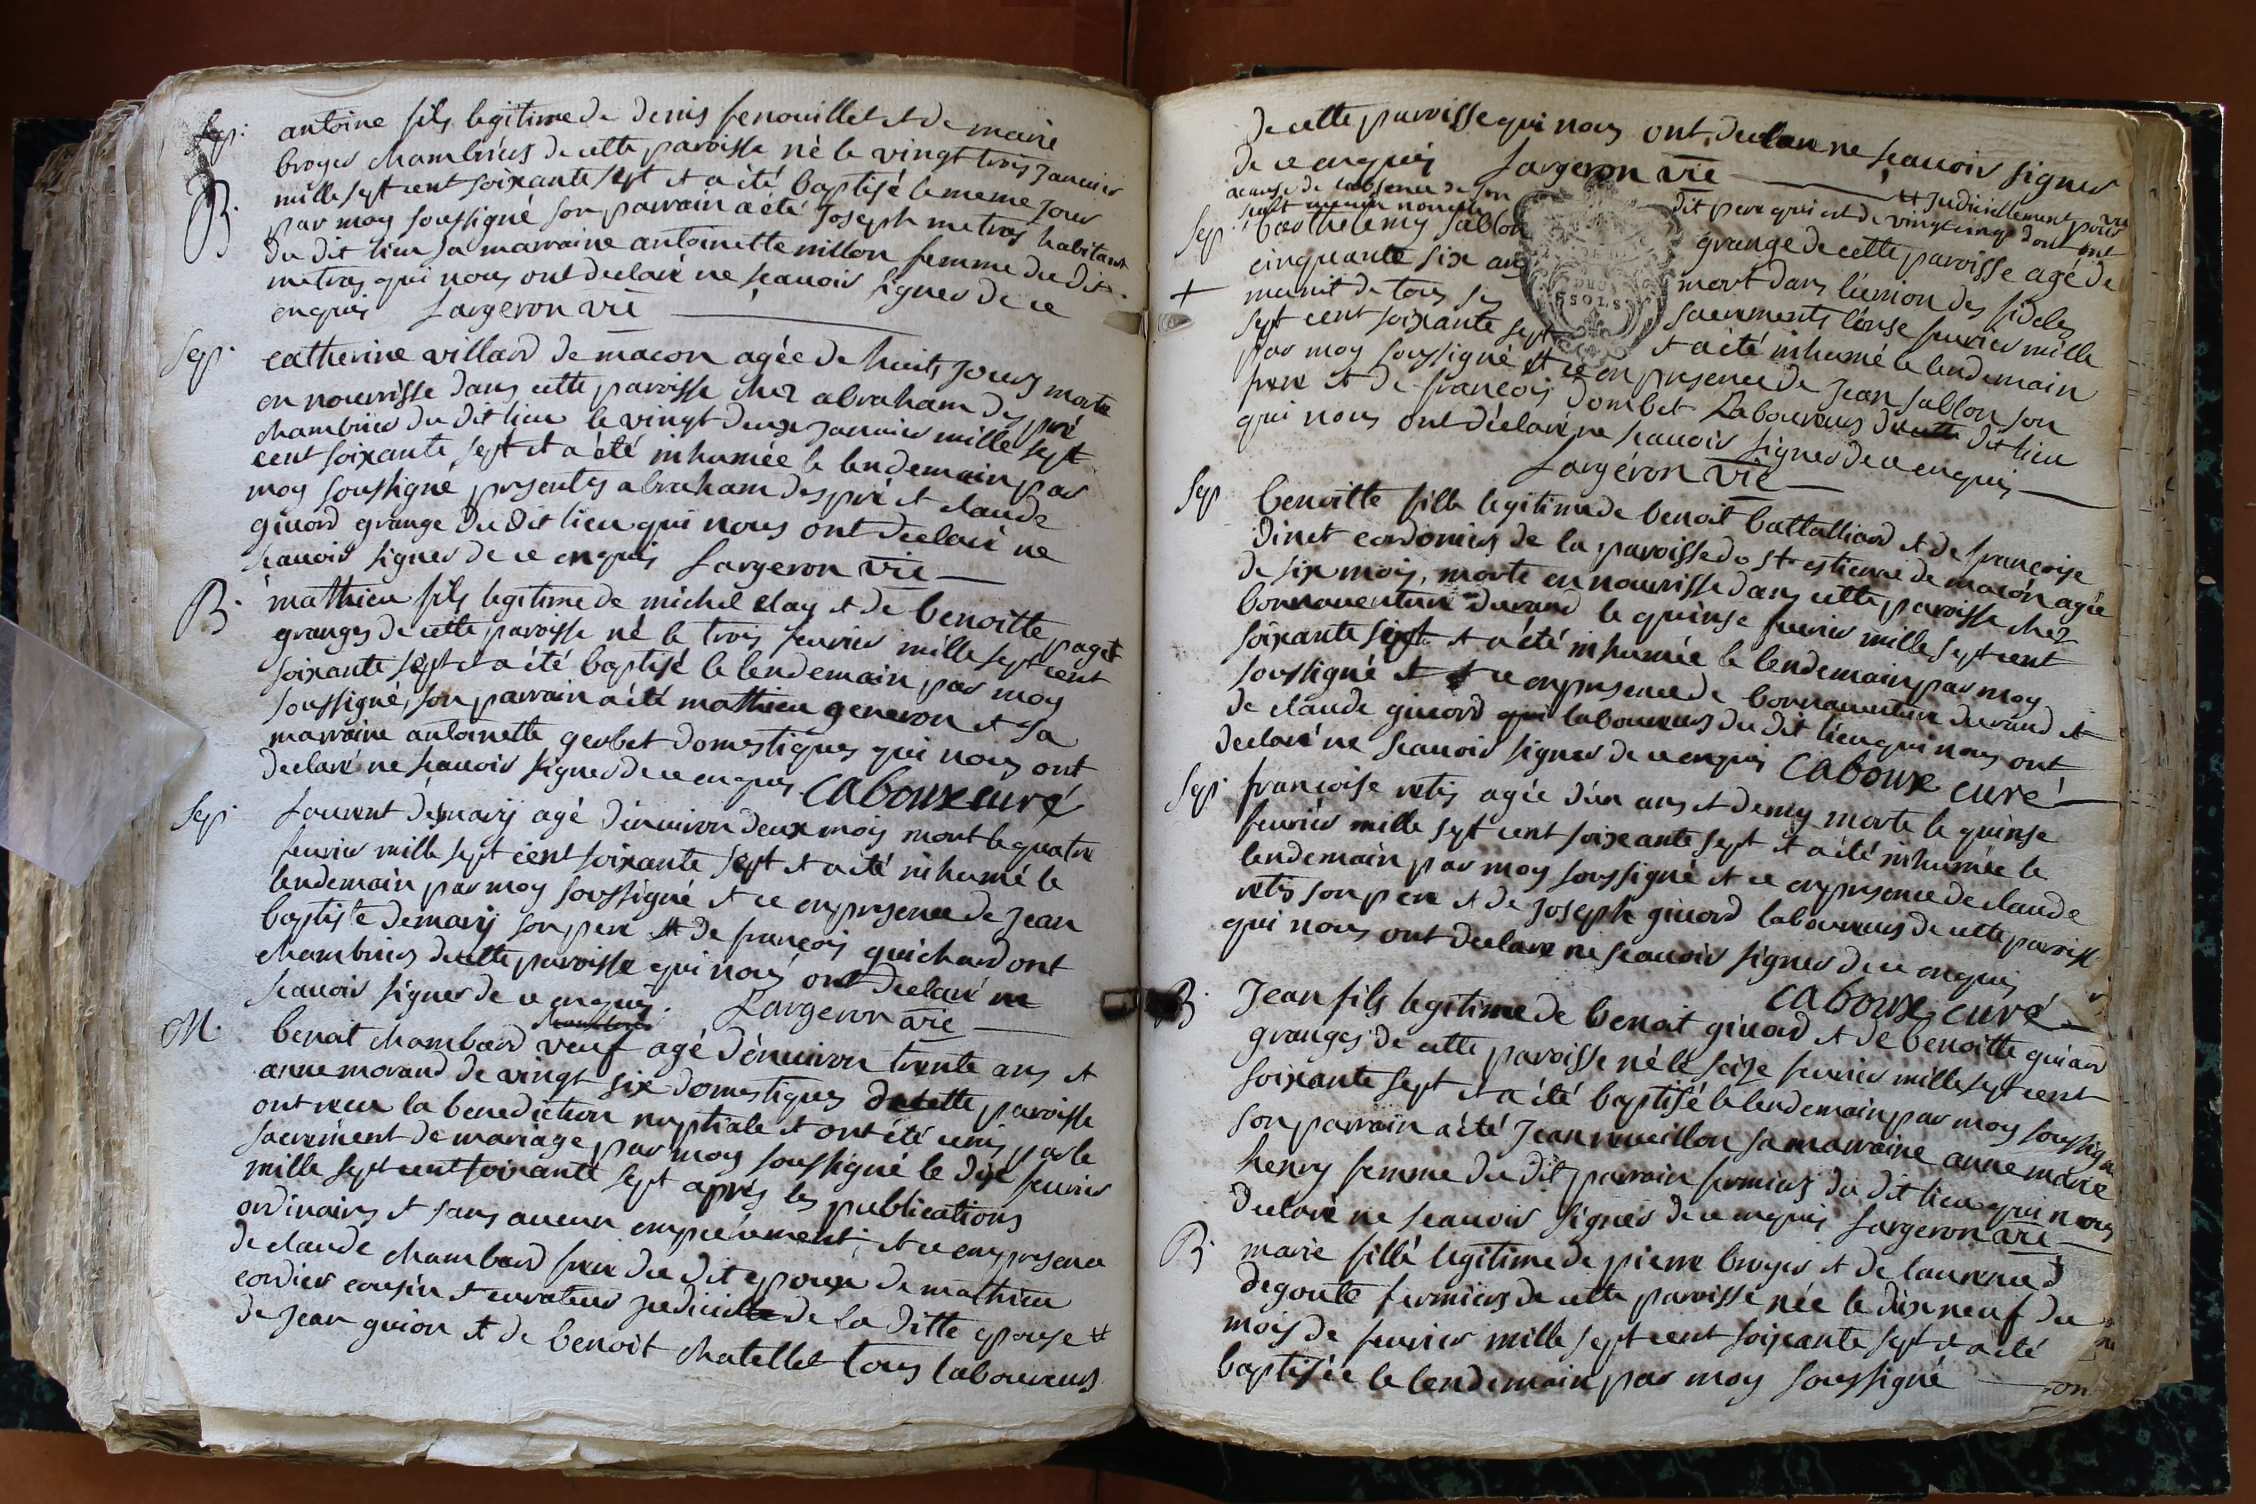 Sep.
antoine fils legitime de denis fenouillet et de marie
broyer chambriers de cette paroisse né le vingt trois janvier
mille sept cent soixante sept et a été baptisé le meme jour
B.
par moy soussigné son parrain a été Joseph metras habitant
du dit lieu sa marraine antoinette millon femme du dit
metras qui nous ont declaré ne scauoir signer de ce
enquis Largeron vic
Sep.
catherine villard de macon agée de huit jours morte
en nourrisse dans cette paroisse chez abraham des pré
chambrier du dit lieu le vingt deux janvier mille sept
cent soixante sept et a été inhumée le lendemain par
moy soussigne presentes abraham des pré et claude
giuord granger du dit lieu qui nous ont declaré ne
scauoir signer de ce enquis Largeron vic
B.
mathieu fils legitime de michel clay et de benoitte paget
granges de cette paroisse né le trois feurier mille sept cent
soixante sept et a été baptisé le lendemain par moy
soussigné, son parrain a été mathieu generon et sa
marraine antoinette gerbet domestiques qui nous ont
declaré ne scauoir signer de ce enquis Caboux curé
Sep.
Laurent démary agé d'enuiron deux mois mort le quatre
feurier mille sept cent soixante sept et a été inhumé le
lendemain par moy soussigné et ce en presence de jean
baptiste demary son pere et de françois guichard ont
chambriers de cette paroisse qui nous ont declaré ne
scauoir signer de ce enquis. Largeron vic
M.
benoit chambard veuf agé d'enuiron trente ans et
anne morand de vingt six domestiques de cette paroisse
ont recu la benediction nuptiale et ont été unis par le
sacrement de mariage par moy soussigné le dix feurier
mille sept cent soixante sept après les publications
ordinaires et sans aucun empechement; et ce en presence
de claude chambard frere du dit epoux de mathieu
cordier cousin et curateur judiciel de la ditte epouse #
de jean guion et de benoit chatellet tous laboureurs
de cette paroisse qui nous ont declare ne scauoir signer
de ce enquis Largeron vic
# judiciellement
a cause de l'absence de son dit pere qui est de vingt cinq
Sep.
barthelemy sablon granger de cette paroisse agé de
cinquante six ans mort dans l'union des fideles
+
munit de tous ses sacrements l'onse feurier mille
sept cent soixante sept et a été inhumé le lendemain
par moy soussigné et ce en presence de jean sablon son
frere et de françois dombet Laboureurs du dit lieu
qui nous ont déclaré ne scauoir signer de ce enquis
Largéron vic
Sep.
benoitte fille legitime de benoit battalliard et de françoise
dinet cordonier de la paroisse de St estienne de macon agée
de six mois, morte en nourrisse dans cette paroisse chez
bonnauenture durand le quinse feurier mille sept cent
soixante sept et a été inhumée le lendemain par moy
soussigné et ce en presence de bonnauenture durand et
de claude giuord laboureurs du dit lieu qui nous ont
declaré ne scauoir signer de ce enquis Caboux curé
Sep.
françoise retis agée d'un ans et demy morte le quinse
feurier mille sept cent soixante sept et a été inhumée le
lendemain par moy soussigné et ce en presence de claude
retis son pere et de Joseph giuord laboureurs de cette paroisse
qui nous ont declare ne scauoir signer de ce enquis
Caboux curé
B.
Jean fils legitime de benoit giuord et de benoitte guiard
granges de cette paroisse né le seise feurier mille sept cent
soixante sept et a été baptisé le lendemain par moy soussigné
son parrain a été Jean reueillon sa marraine anne marie
henry femme du dit parrain fermiers du dit lieu qui nous
declaré ne scauoir signer de ce enquis Largeron vic
B.
marie fille legitime de pierre broyer et de laurence d
degoute fermiers de cette paroisse née le dix neuf du
mois de feurier mille sept cent soixante sept et a été
baptisée le lendemain par moy soussigné